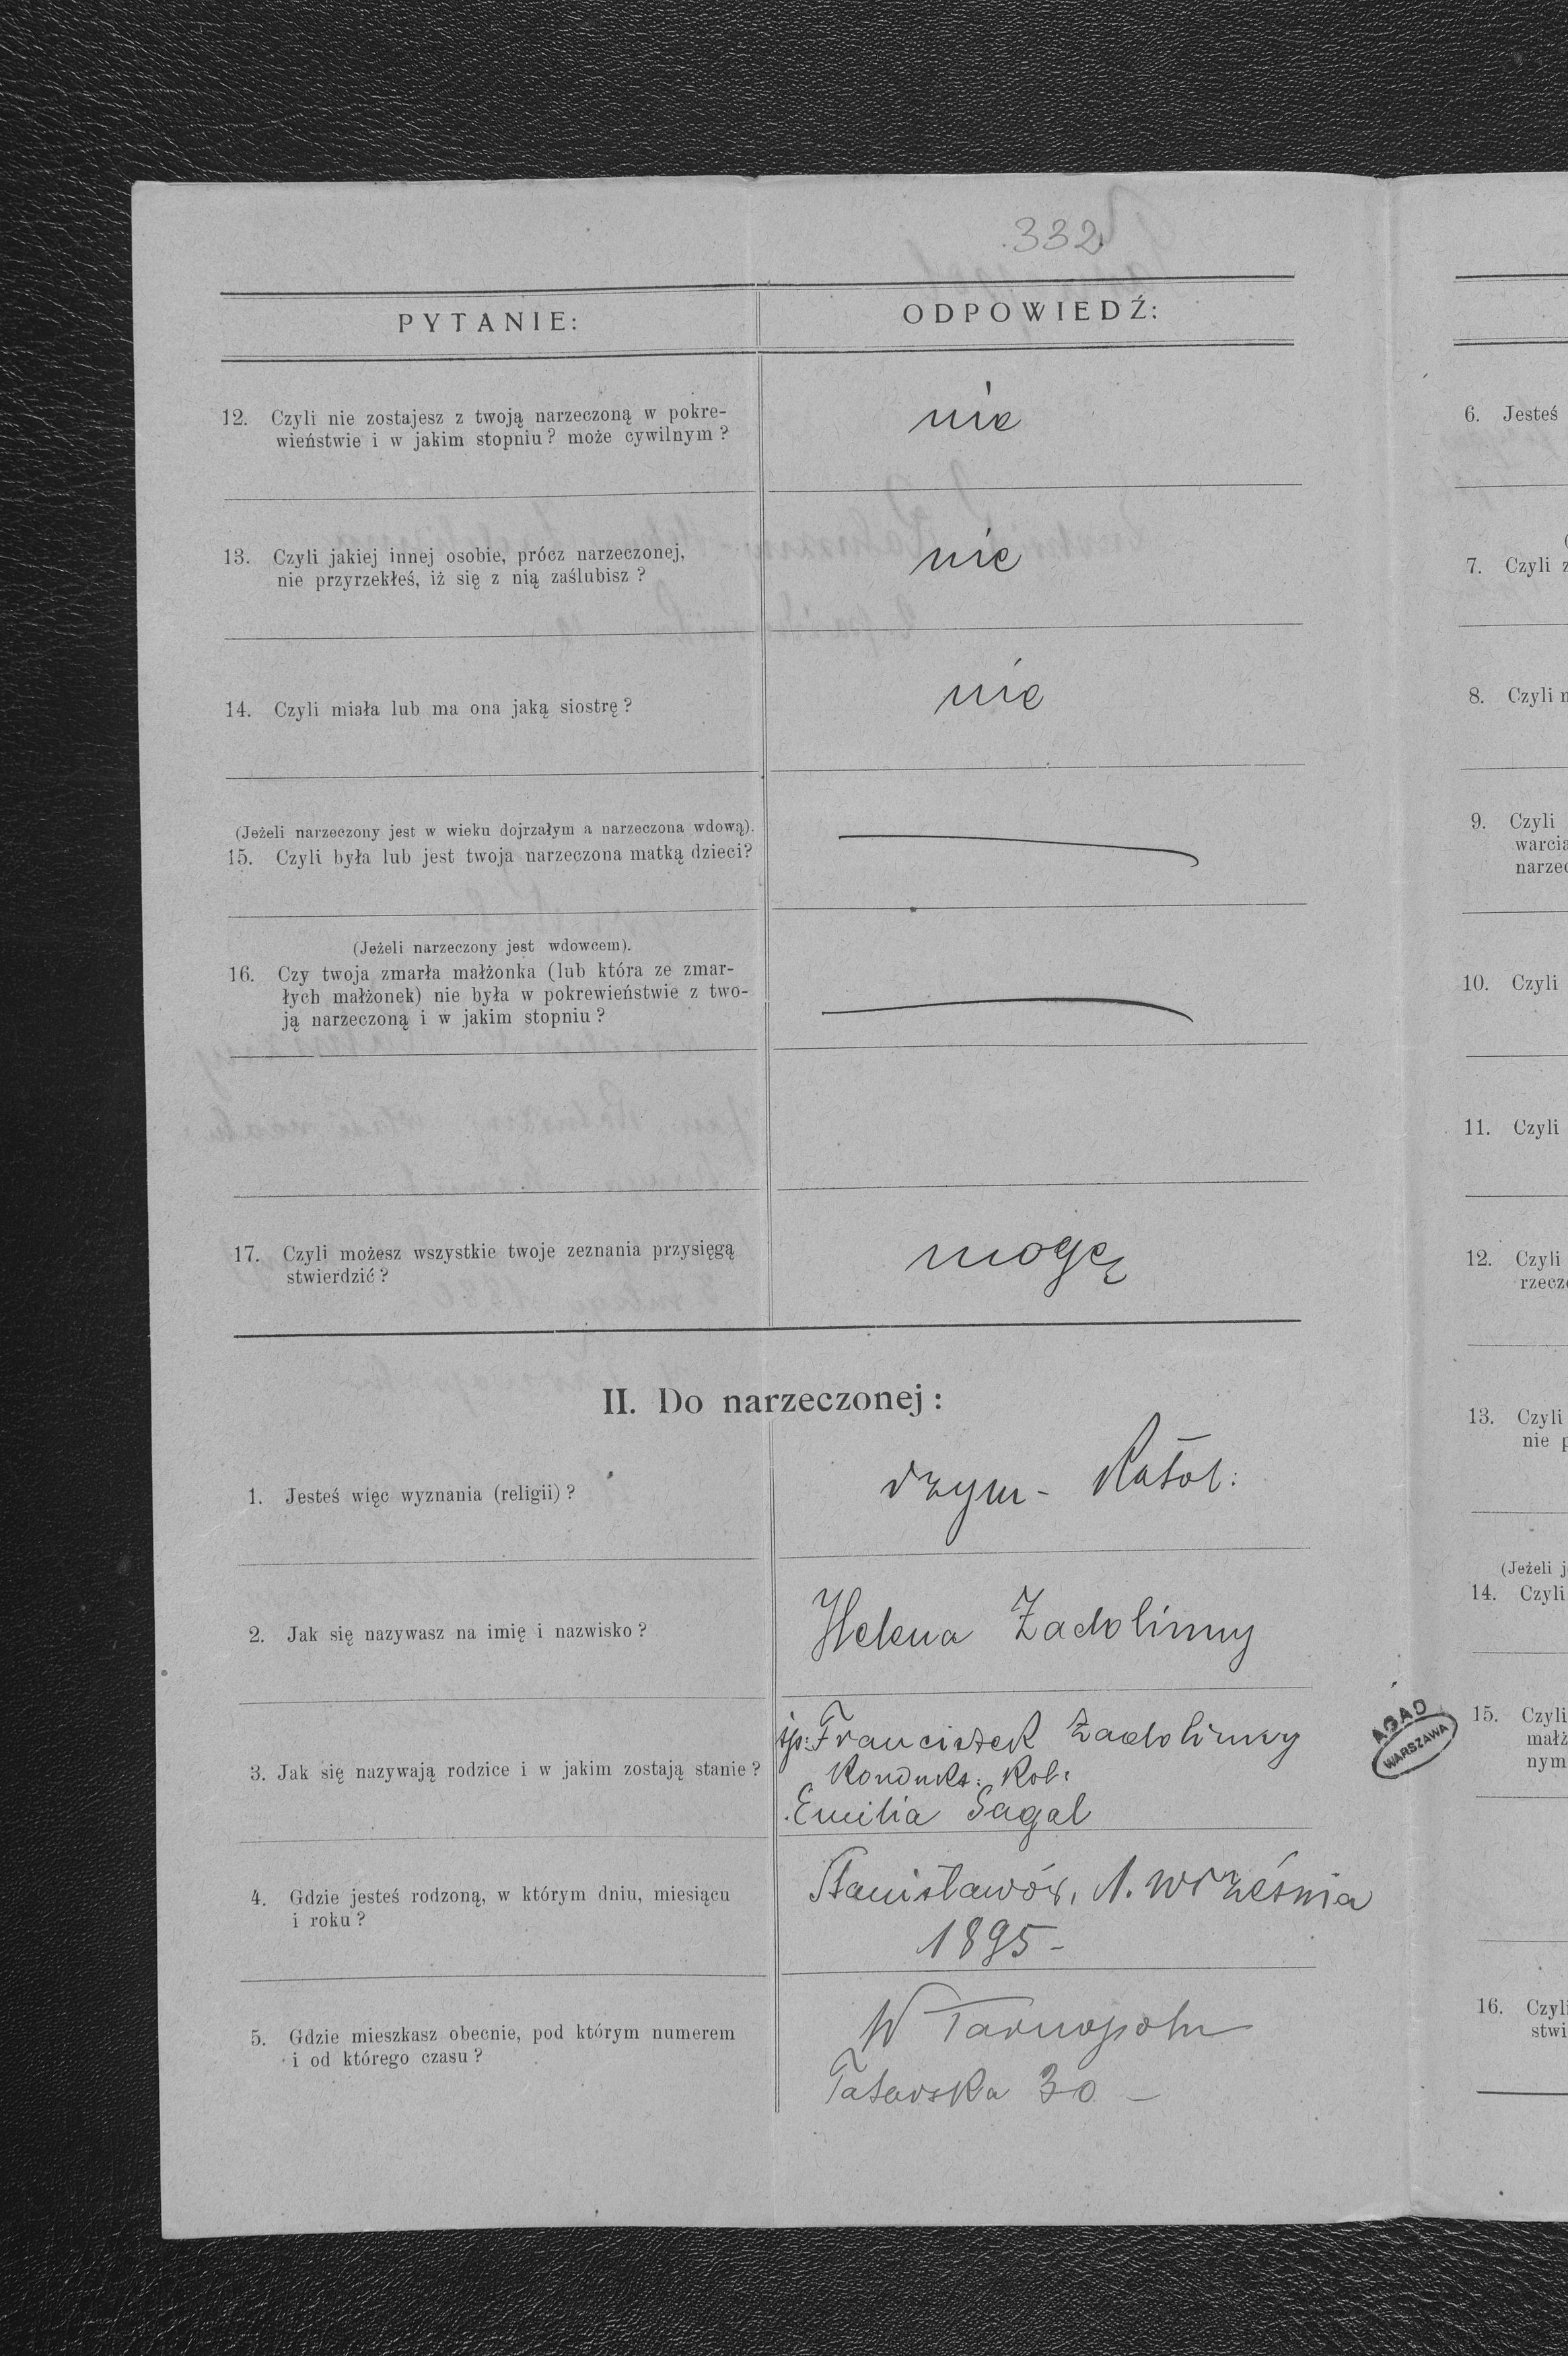 332
PYTANIE:
ODPOWIEDŹ:
12. Czyli nie zostajesz z twoją narzeczoną w pokre-
wieństwie i w jakim stopniu? może cywilnym?
nie
13. Czyli jakiej innej osobie, prócz narzeczonej,
nie przyrzekłeś, iż się z nią zaślubisz?
nie
14. Czyli miała lub ma ona jaką siostrę?
nie
(Jeżeli narzeczony jest w wieku dojrzałym a narzeczona wdową).
15. Czyli była lub jest twoja narzeczona matką dzieci?
(Jeżeli narzeczony jest wdowcem).
16. Czy twoja zmarła małżonka (lub która ze zmar-
łych małżonek) nie była w pokrewieństwie z two-
ją narzeczoną i w jakim stopniu?
17. Czyli możesz wszystkie twoje zeznania przysięgą
stwierdzić?
mogę
II. Do narzeczonej:
1. Jesteś więc wyznania (religii)?
rzym- Katol:
2. Jak się nazywasz na imię i nazwisko?
Helena Zadolinny
3. Jak się nazywają rodzice i w jakim zostają stanie?
śp: Franciszek Zadolinny
Kondukt: Kol:
Emilia Sagal
4. Gdzie jesteś rodzoną, w którym dniu, miesiącu
i roku?
Stanisławów, 1. Września
1895-
5. Gdzie mieszkasz obecnie, pod którym numerem
i od którego czasu?
W Tarnopolu
Tatarska 30 -
AGAD
WARSZAWA
6. Jesteś
7. Czyli z
8. Czyli n
9. Czyli
warcia
narzec
10. Czyli
11. Czyli
12. Czyli
rzecz
13. Czyli
nie p
(Jeżeli j
14. Czyli
15. Czyli
małż
nym
16. Czyli
stwi